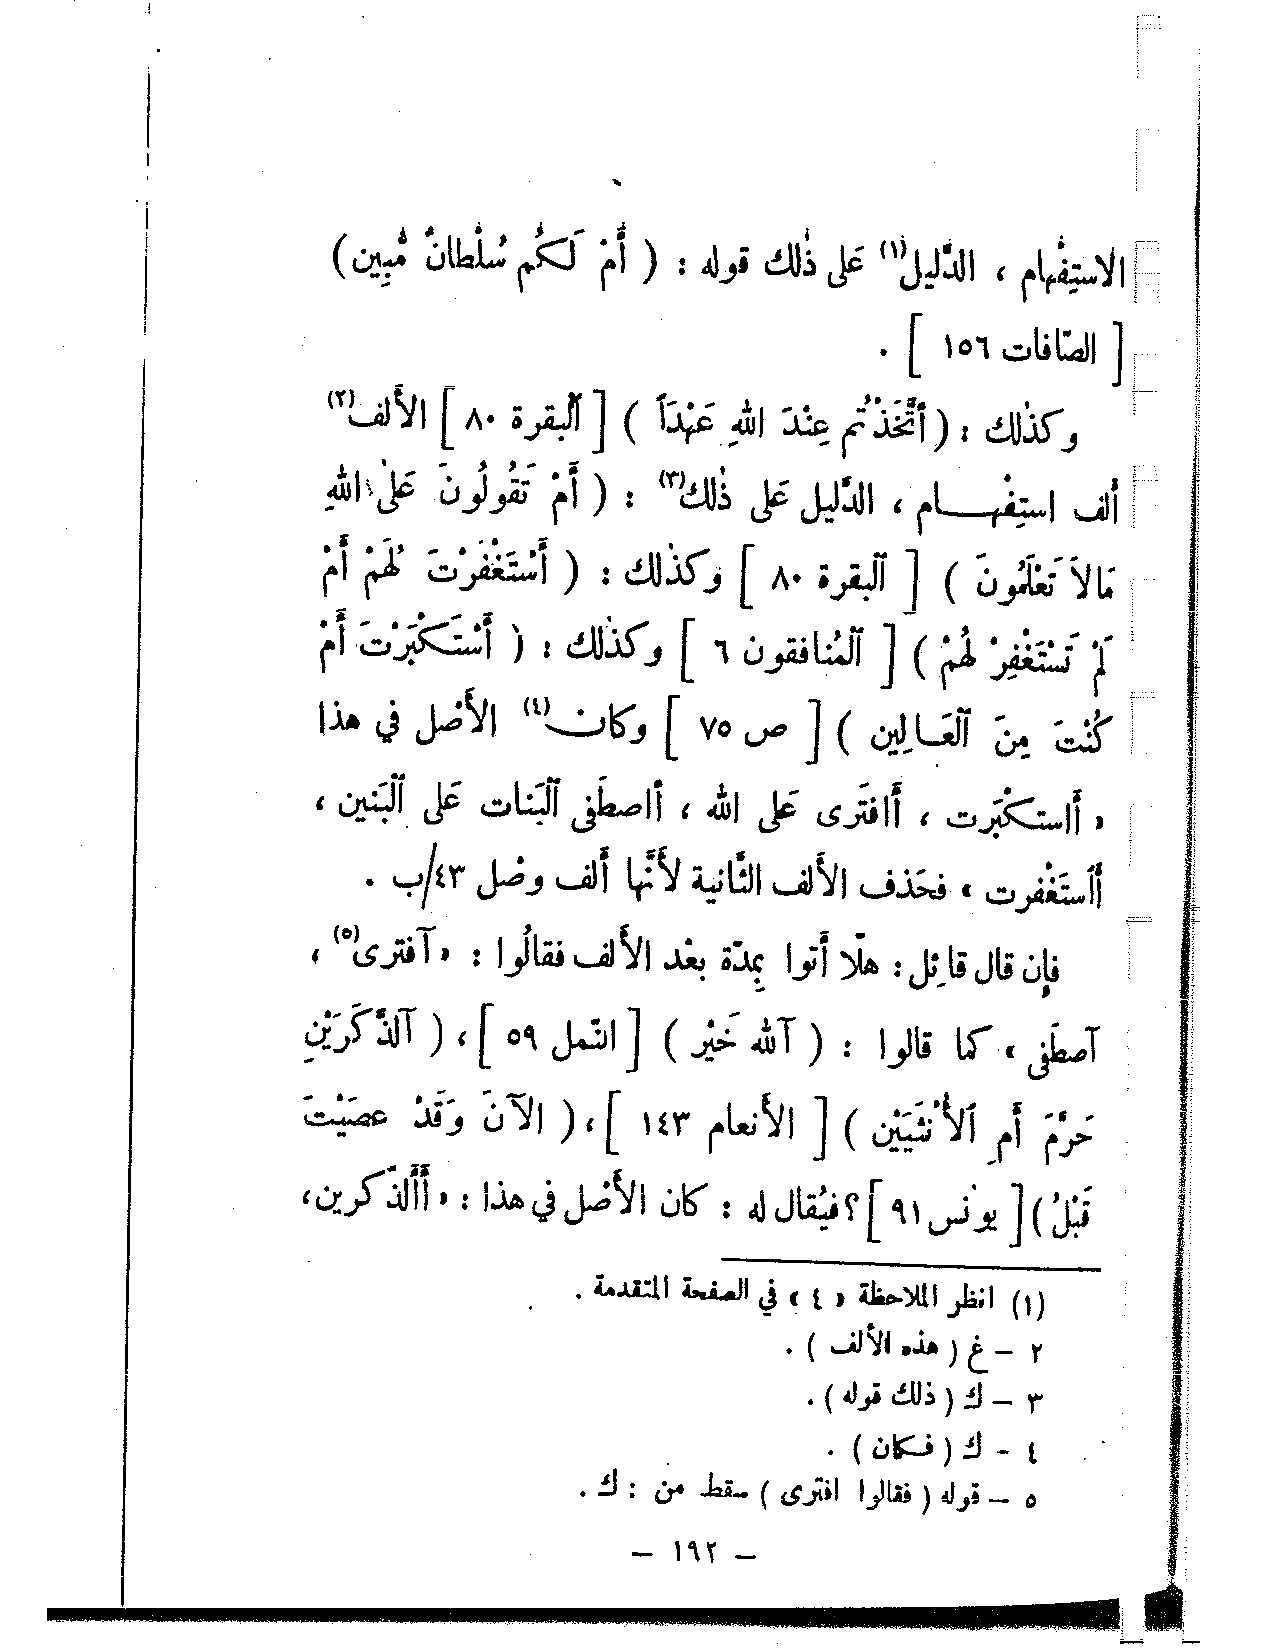 الاستِفْهام ، الدَّليل(١) عَلى ذٰلك قوله : ( أَمْ لَكُم سُلْطانٌ مُّبِين )
[ الصّافات ١٥٦ ] .
وكذٰلك : ( أَتَّخَذْتُم عِنْدَ اللهِ عَهْدَاً ) [ ٱلبقرة ٨٠ ] الأَلف(٢)
أَلف استِفْهــام ، الدَّليل عَلى ذٰلك(٣) : ( أَمْ تَقُولُونَ عَلىٰ اللهِ
مَالاَ تَعْلَمُونَ ) [ ٱلبقرة ٨٠ ] وكذٰلك : ( أَسْتَغْفَرْتَ لَهُمْ أَمْ
لَمْ تَسْتَغْفِرْ لَهُمْ ) [ ٱلمُنافقون ٦ ] وكذٰلك : ( أَسْتَكْبَرْتَ أَمْ
كُنْتَ مِنَ ٱلعَـالِين ) [ ص ٧٥ ] وكان(٤) الأَصْل في هذا
« أَاستكْبَرت ، أَافتَرى عَلى الله ، أَاصطَفى ٱلبَنات عَلى ٱلبَنين ،
أَاستَغْفرت » فحَذف الأَلف الثَّانية لأَنَّها أَلف وصْل ٤٣/ب .
فإِن قال قائِل : هلّا أَتوا بِمدّة بعْد الأَلف فقالُوا : « آفترى(٥) ،
آصطَفى » كما قالوا : ( آلله خَيْر ) [ النّمل ٥٩ ] ، ( آلذَّكَرَيْنِ
حَرَّمَ أَمِ ٱلأُنْثَيَيْن ) [ الأَنعام ١٤٣ ] ، ( الآنَ وَقَدْ عصَيْتَ
قَبْلُ ) [ يونس ٩١ ] ؟ فيُقال له : كان الأَصْل في هذا : « أَأَلذّكرين ،
(١) انظر الملاحظة « ٤ » في الصفحة المتقدمة .
٢ – غ ( هذه الألف ) .
٣ – ك ( ذلك قوله ) .
٤ - ك ( فـكان ) .
٥ – قوله ( فقالوا افترى ) سقط من : ك .
– ١٩٢ –